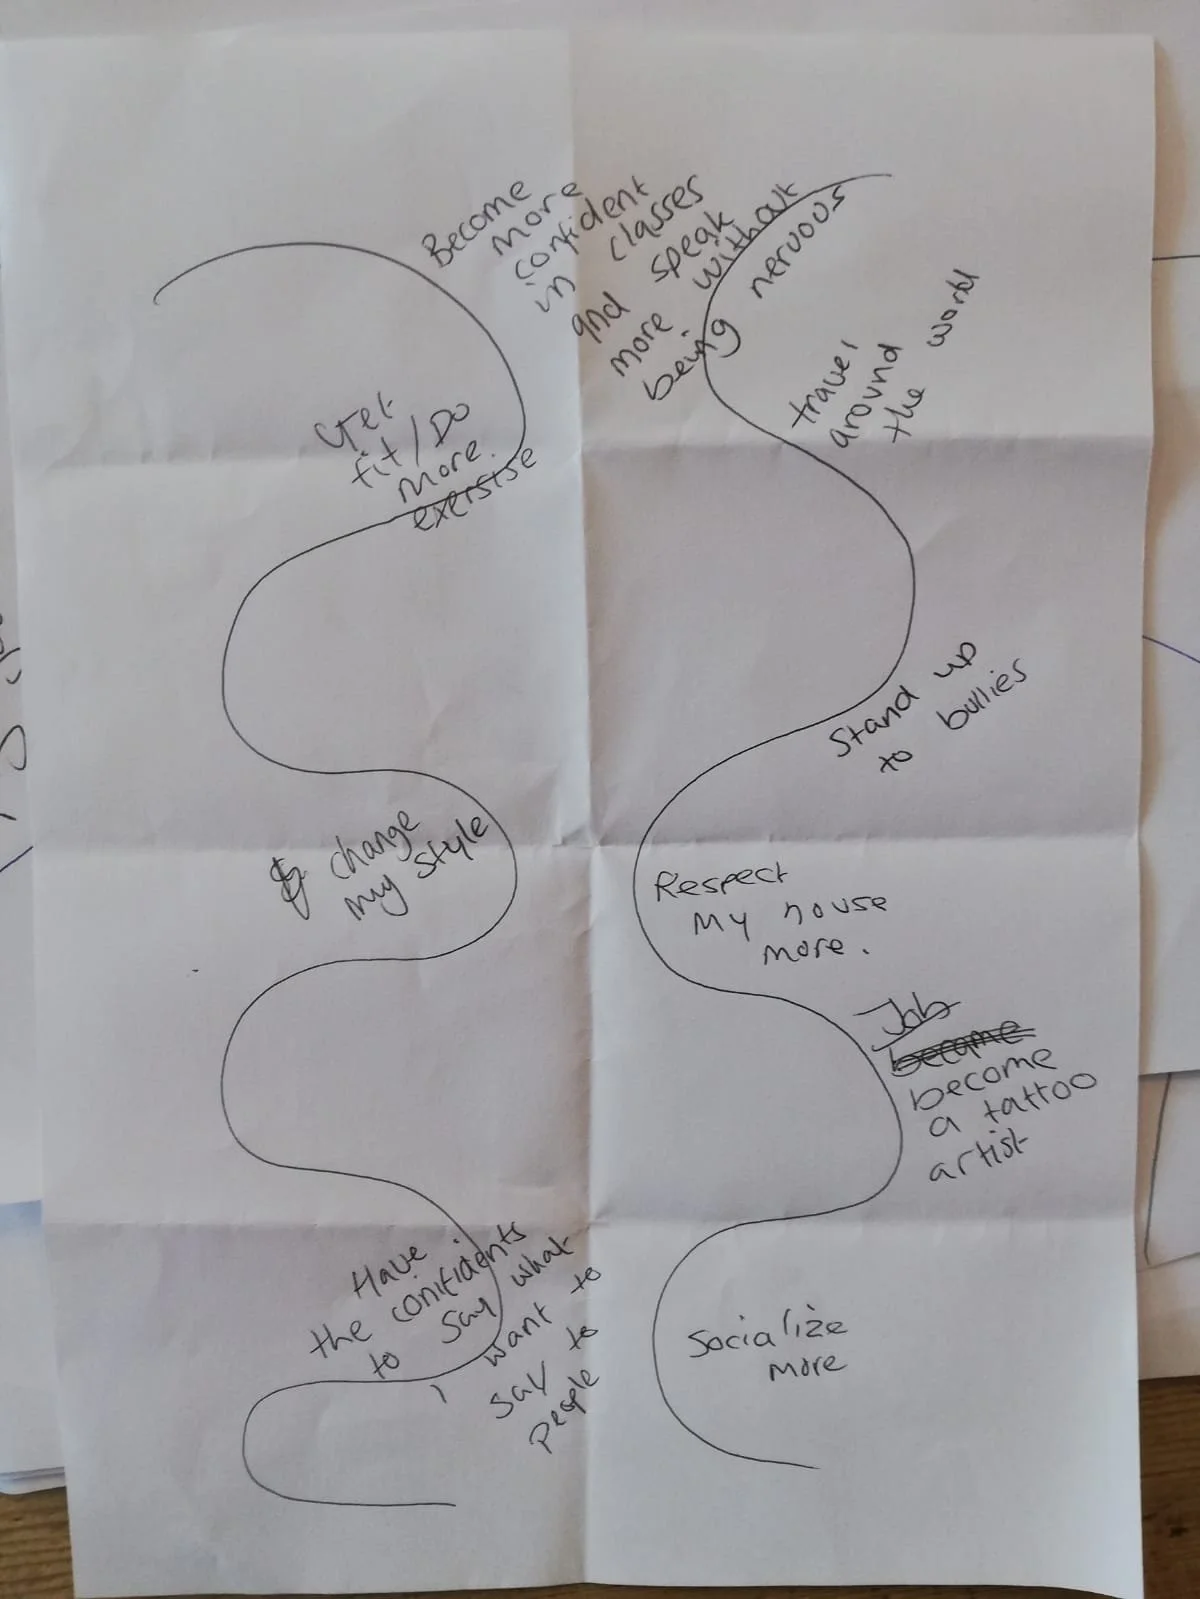 Become
more
confident
in classes
and speak
more without
being nervous
travel
around
the world
Get
fit / Do
more.
exersise
Stand up
to bullies
change
my style
Respect
my house
more.
Job
become
become
a tattoo
artist
Have
the conifidents
to say what
I want to
say to
people
Socialize
more